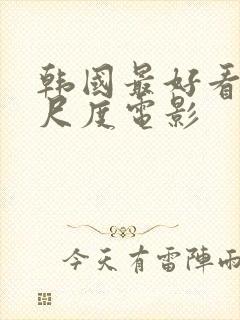 韩國最好看
尺度電影
今天有雷陣雨